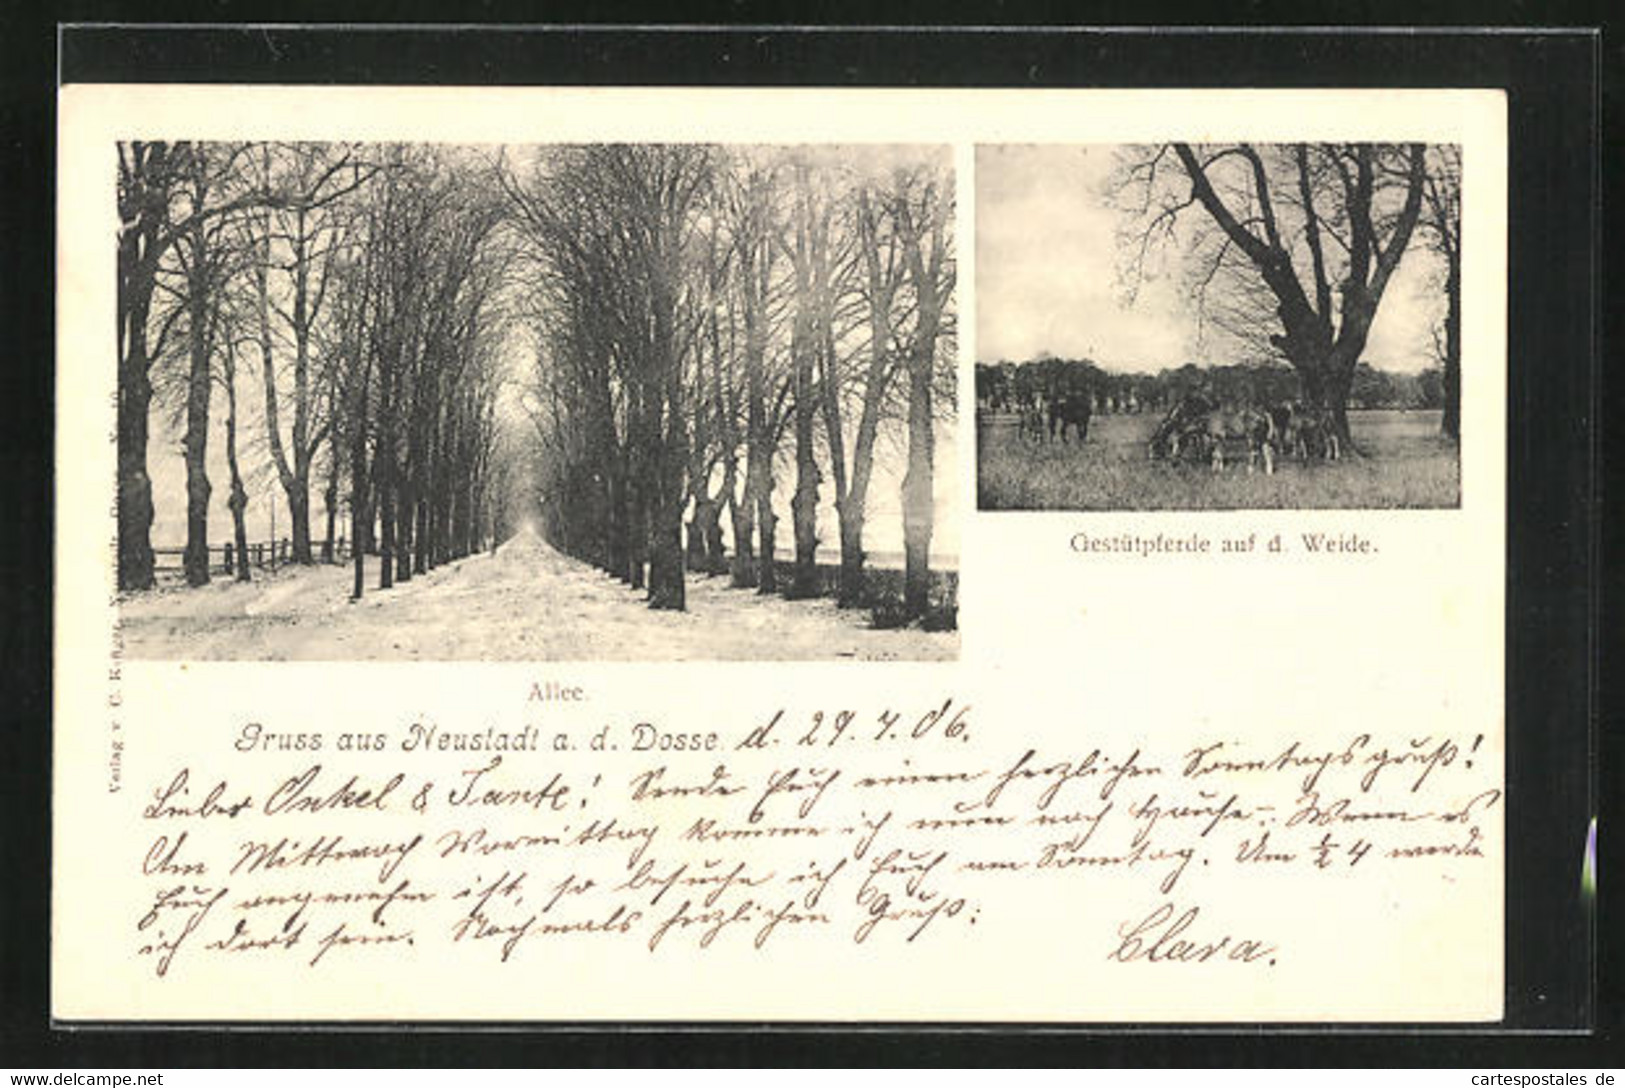 Gestütpferde auf d. Weide.
Allee.
Gruss aus Neustadt a. d. Dosse. d. 29.7.06.
Lieber Onkel & Tante! Sende Euch einen herzlichen Sonntagsgruß!
Am Mittwoch Vormittag komme ich nun nach Hause. Wenn es
Euch angenehm ist, so besuche ich Euch am Sonntag. Um ½ 4 werde
ich dort sein. Nochmals herzlichen Gruß:
Clara.
Verlag v. C. Krüger, Neustadt
cartespostales de